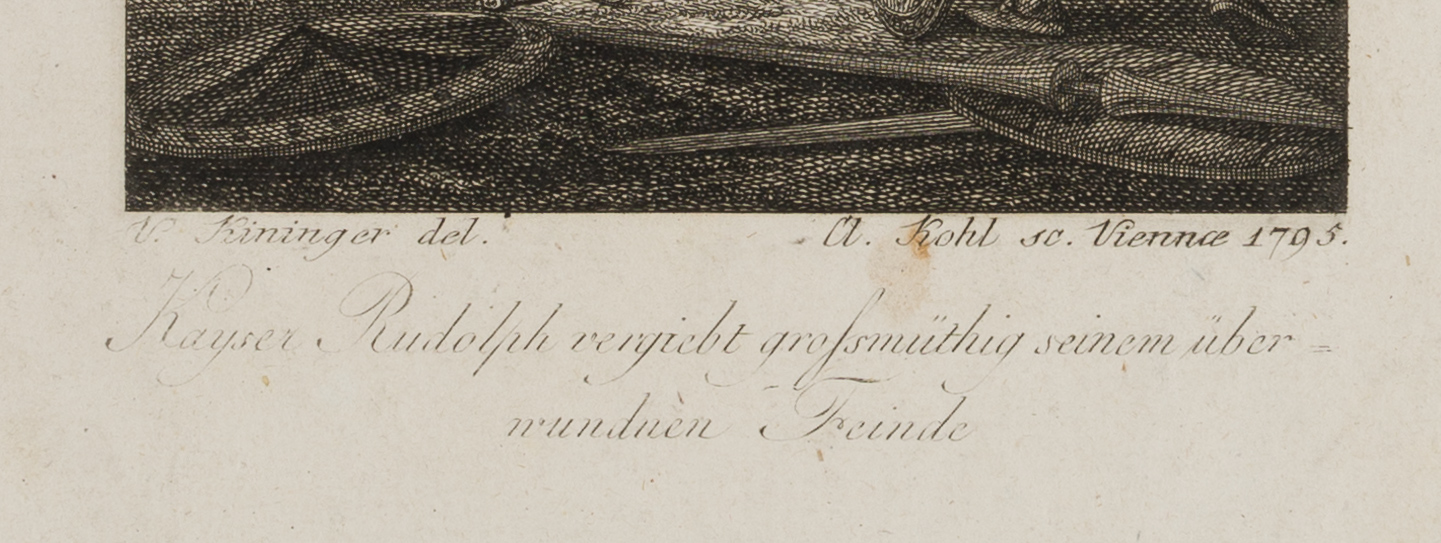 V. Kininger del.
Cl. Kohl sc. Viennæ 1795.
Kayser Rudolph vergiebt groſsmüthig seinem über=
wundnen Feinde